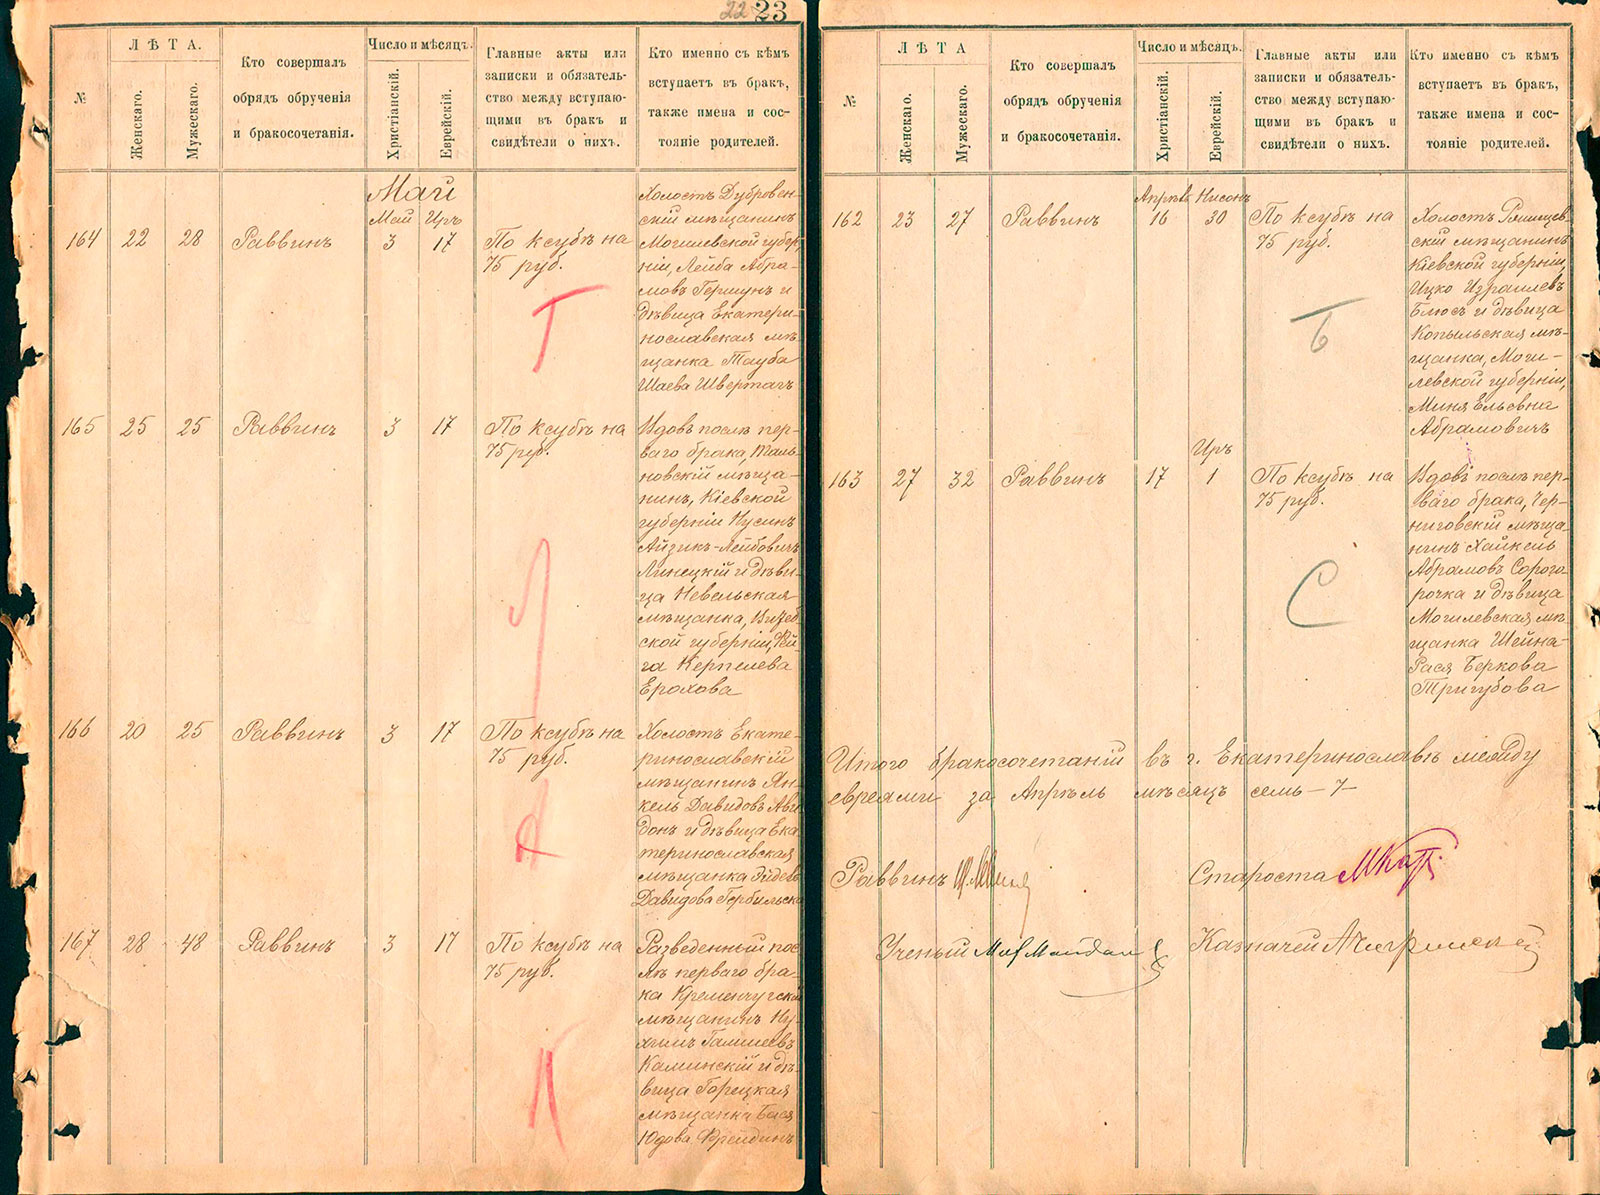 22 23
№
ЛѢТА.
Женскаго.
Мужескаго.
Кто совершалъ
обрядъ обрученія
и бракосочетанія.
Число и мѣсяцъ.
Христіанскій.
Еврейскій.
Главные акты или
записки и обязатель-
ство между вступаю-
щими въ бракъ и
свидѣтели о нихъ.
Кто именно съ кѣмъ
вступаетъ въ бракъ,
также имена и сос-
тояніе родителей.
Май
Май Иръ
164 22 28 Раввинъ 3 17
По ксубѣ на
75 руб.
Холостъ Дубровен-
скій мѣщанинъ
Могилевской губер-
ніи, Лейба Абра-
мовъ Гершунъ и
дѣвица Екатери-
нославская мѣ-
щанка Тауба
Шаева Швертагъ
Г
165 25 25 Раввинъ 3 17
По ксубѣ на
75 руб.
Вдовъ послѣ пер-
ваго брака, Таль-
новскій мѣща-
нинъ, Кіевской
губерніи Нусинъ
Айзикъ-Лейбовичъ
Линецкій и дѣви-
ца Невельская
мѣщанка, Витеб-
ской губерніи, Фей-
га Керпелева
Ерохова
Л
166 20 25 Раввинъ 3 17
По ксубѣ на
75 руб.
Холостъ Екате-
ринославскій
мѣщанинъ Ян-
кель Давидовъ Авги-
донъ и дѣвица Ека-
теринославская
мѣщанка
Давидова Гербильска
А
167 28 48 Раввинъ 3 17
По ксубѣ на
75 руб.
Разведенный пос-
лѣ перваго бра-
ка Кременчугскій
мѣщанинъ Ну-
химъ
Каминскій и дѣ-
вица Горецкая
мѣщанка Бася
Юдова Фрейдинъ
К
№
ЛѢТА
Женскаго.
Мужескаго.
Кто совершалъ
обрядъ обрученія
и бракосочетанія.
Число и мѣсяцъ.
Христіанскій.
Еврейскій.
Главные акты или
записки и обязатель-
ство между вступаю-
щими въ бракъ и
свидѣтели о нихъ.
Кто именно съ кѣмъ
вступаетъ въ бракъ,
также имена и сос-
тояніе родителей.
Апрѣль Нисонъ
162 23 27 Раввинъ 16 30
По ксубѣ на
75 руб.
Холостъ
скій мѣщанинъ
Кіевской губерніи,
Ицко Израилевъ
Блюсъ и дѣвица
Копыльская мѣ-
щанка, Моги-
левской губерніи,
Миня Ельевна
Абрамовичъ
Б
Иръ
163 27 32 Раввинъ 17 1
По ксубѣ на
75 руб.
Вдовъ послѣ пер-
ваго брака, Чер-
ниговскій мѣща-
нинъ Хайкель
Абрамовъ Сорого-
рочка и дѣвица
Могилевская мѣ-
щанка Шейна-
Рася Беркова
Тригубова
С
Итого бракосочетаній въ г. Екатеринославѣ между
евреями за Апрѣль мѣсяцъ семь – 7 –
Раввинъ
Староста
Ученый
Казначей